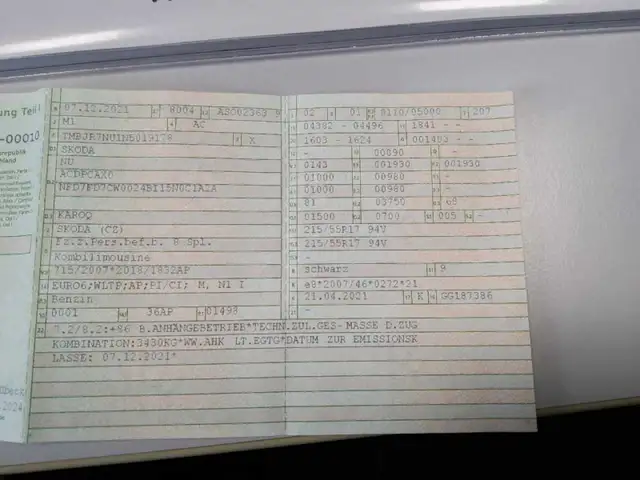 ung Teil I
-00010
07.12.2021 8004 ASO02363 9
M1 AC
TMBJR7NU1N5019178 X
SKODA
NU
ACDPCAX0
NFD7FD7CW0024BI15N0C1A2A
KAROQ
SKODA (CZ)
Fz.z.Pers.bef.b. 8 Spl.
Kombilimousine
715/2007*2018/1832AP
EURO6;WLTP;AP;PI/CI; M, N1 I
Benzin
0001 36AP 01498
02 01 0110/05000 207
04382 - 04496 1841 -
1603 - 1624 001453 -
- 00090 -
0143 001930 001930
01000 00980 -
01000 00980 -
81 03750 68
01500 0700 005 -
215/55R17 94V
215/55R17 94V
-
schwarz 9
e8*2007/46*0272*21
21.04.2021 K GG187386
-
7.2/8.2:+86 B.ANHÄNGEBETRIEB*TECHN.ZUL.GES-MASSE D.ZUG
KOMBINATION:3430KG*WW.AHK LT.EGTG*DATUM ZUR EMISSIONSK
LASSE: 07.12.2021*